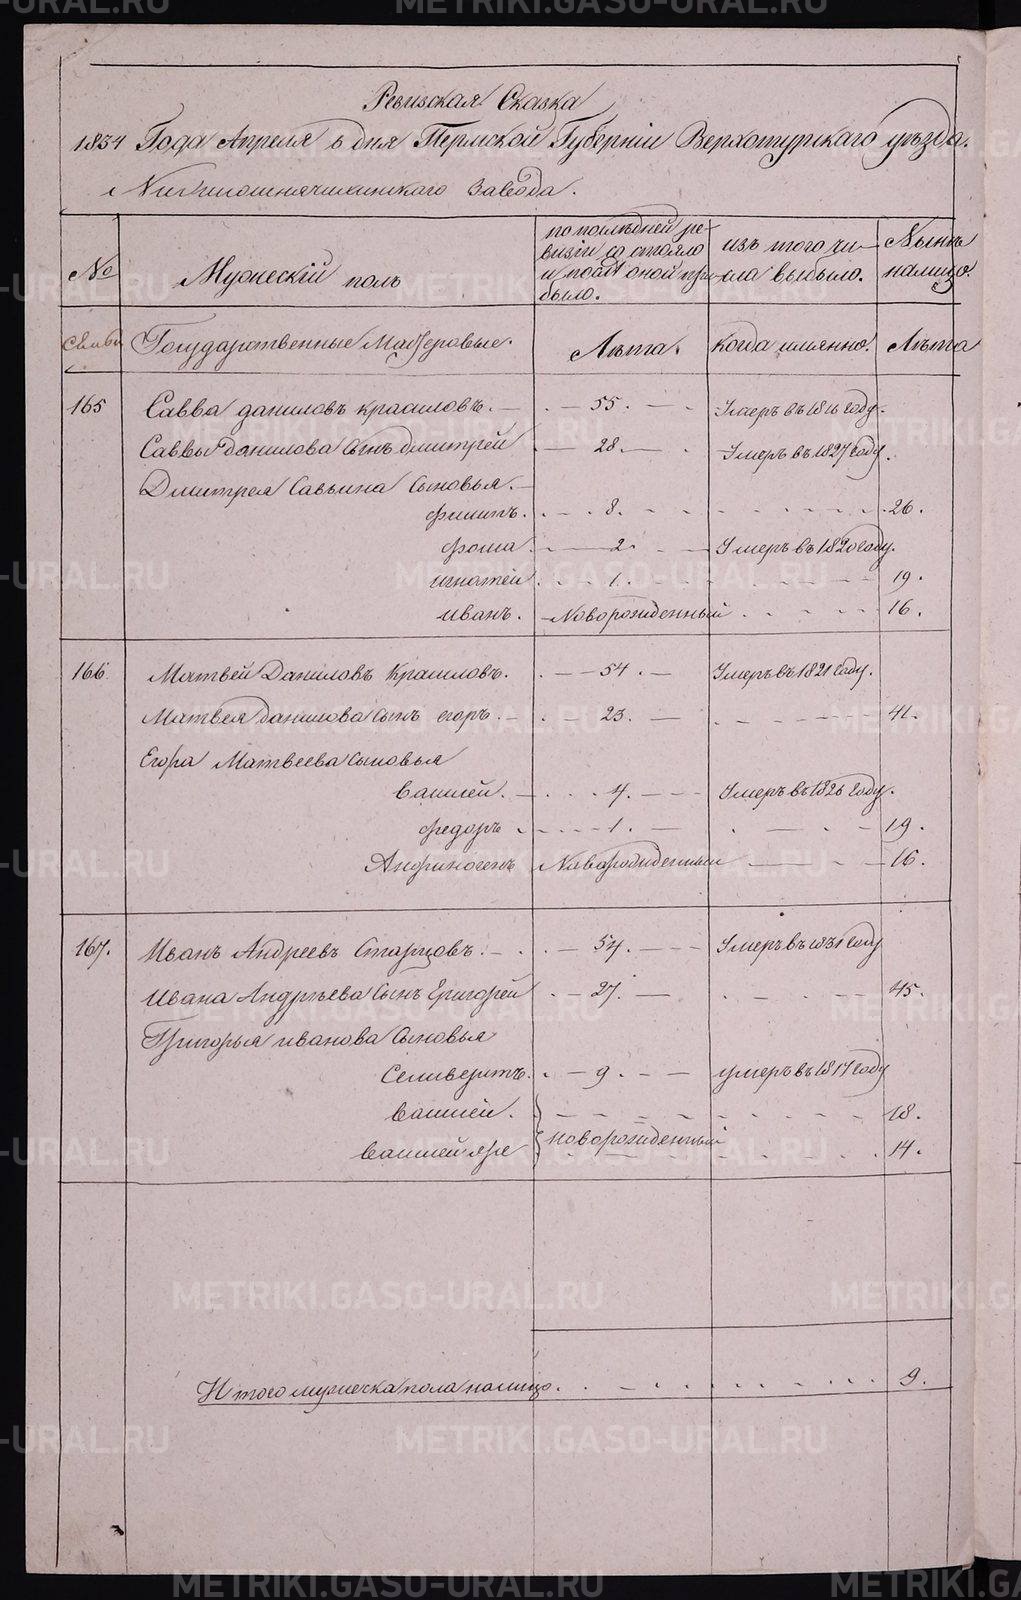 Ревизская Сказка
1834 Года Апреля дня Пермской Губерніи Верхотурскаго уѣзда.
Завода.
№
Мужескій полъ
по послѣдней ре-
визіи состояло
и послѣ оной при-
было.
изъ того чи-
сла выбыло.
Нынѣ
налицо.
Семьи
Государственные Мастеровые.
Лѣта.
Когда имянно.
Лѣта
165 Савва Даниловъ Красиловъ. 55. Умеръ въ 1816 году.
Саввы Данилова Сынъ Дмитрей 28. Умеръ въ 1827 году.
Дмитрея Савьина Сыновья.
Филипъ. 8. 26.
Фома. 2. Умеръ въ 1820 году.
Игнатей 1. 19.
Иванъ. Новорожденный 16.
166 Матвей Даниловъ Красиловъ. 54. Умеръ въ 1821 году.
Матвея Данилова Сынъ Егоръ. 23. 41.
Егора Матвеева Сыновья
Василей. 4. Умеръ въ 1826 году.
Федоръ 1. 19.
Анфиногенъ Новорожденный 16.
167. Иванъ Андреевъ Старцовъ. 54. Умеръ въ 1831 году
Ивана Андрѣева Сынъ Григорей 27. 45.
Григорья Иванова Сыновья
Селиверстъ. 9. умеръ въ 1817 году
Василей. 18.
новорожденный
Василей 14.
Итого мужеска пола налицо. 9.
METRIKI.GASO-URAL.RU